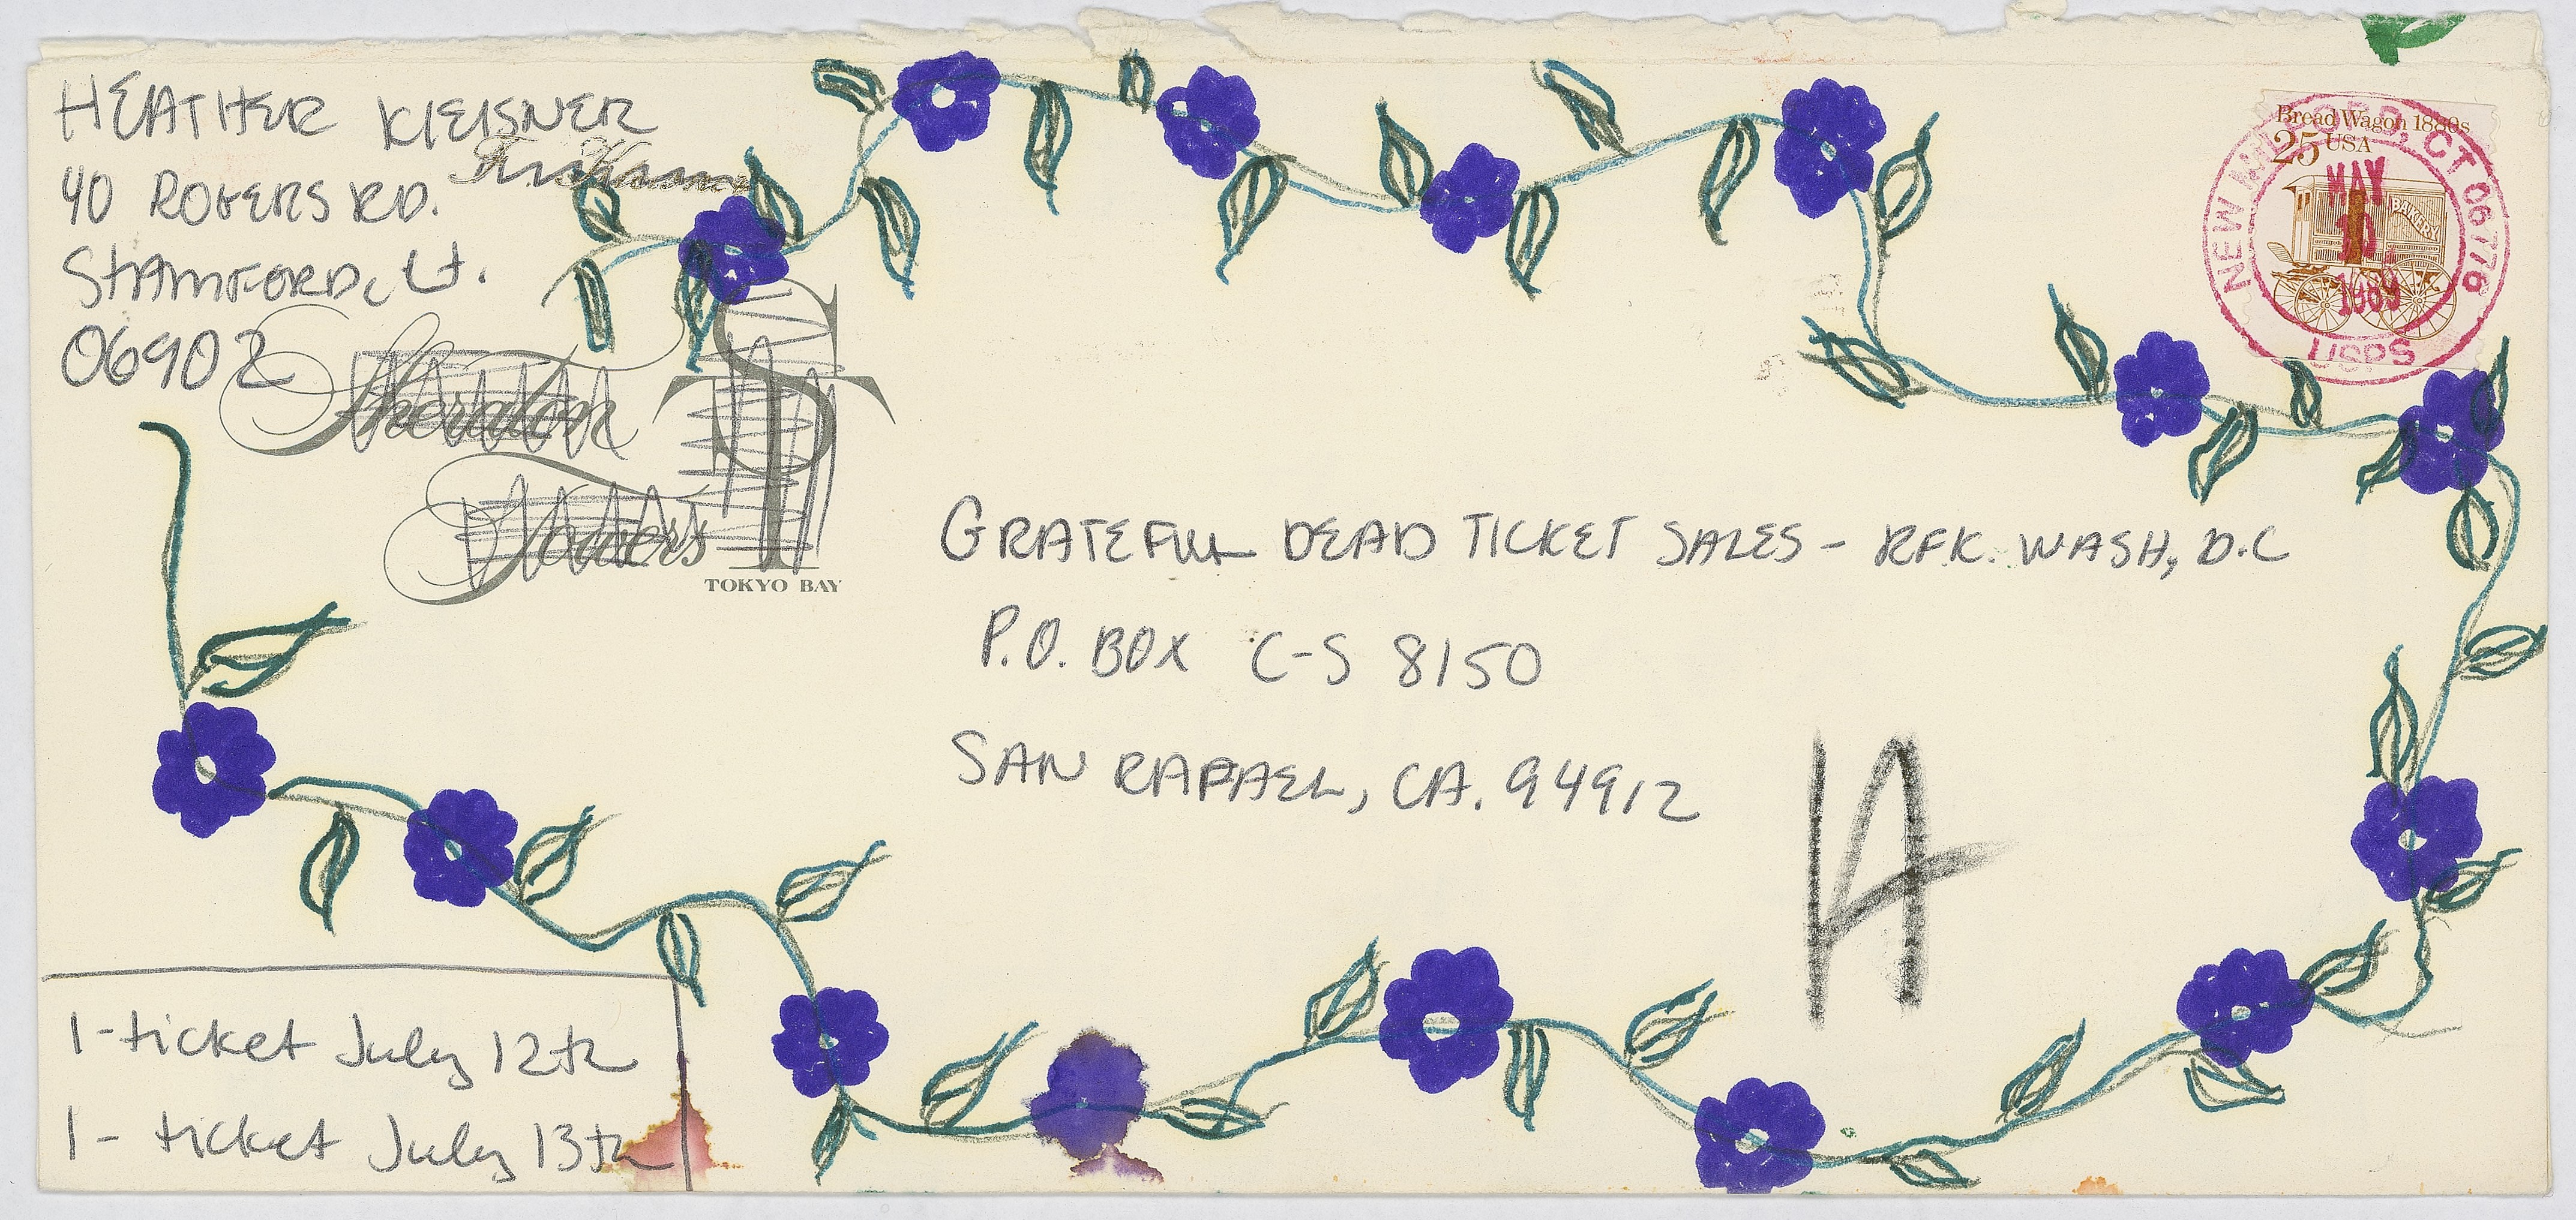 HEATHER KLEISNER
40 ROGERS RD.
STAMFORD, Ct.
06902
Sheraton
Towers
ST
TOKYO BAY
Bread Wagon 1880s
25 USA
BAKERY
NEW MILFORD, CT 06776
MAY
10
1989
USPS
GRATEFUL DEAD TICKET SALES - RFK. WASH, D.C
P.O. BOX C-S 8150
SAN RAFAEL, CA. 94912
A
1-ticket July 12th
1- ticket July 13th